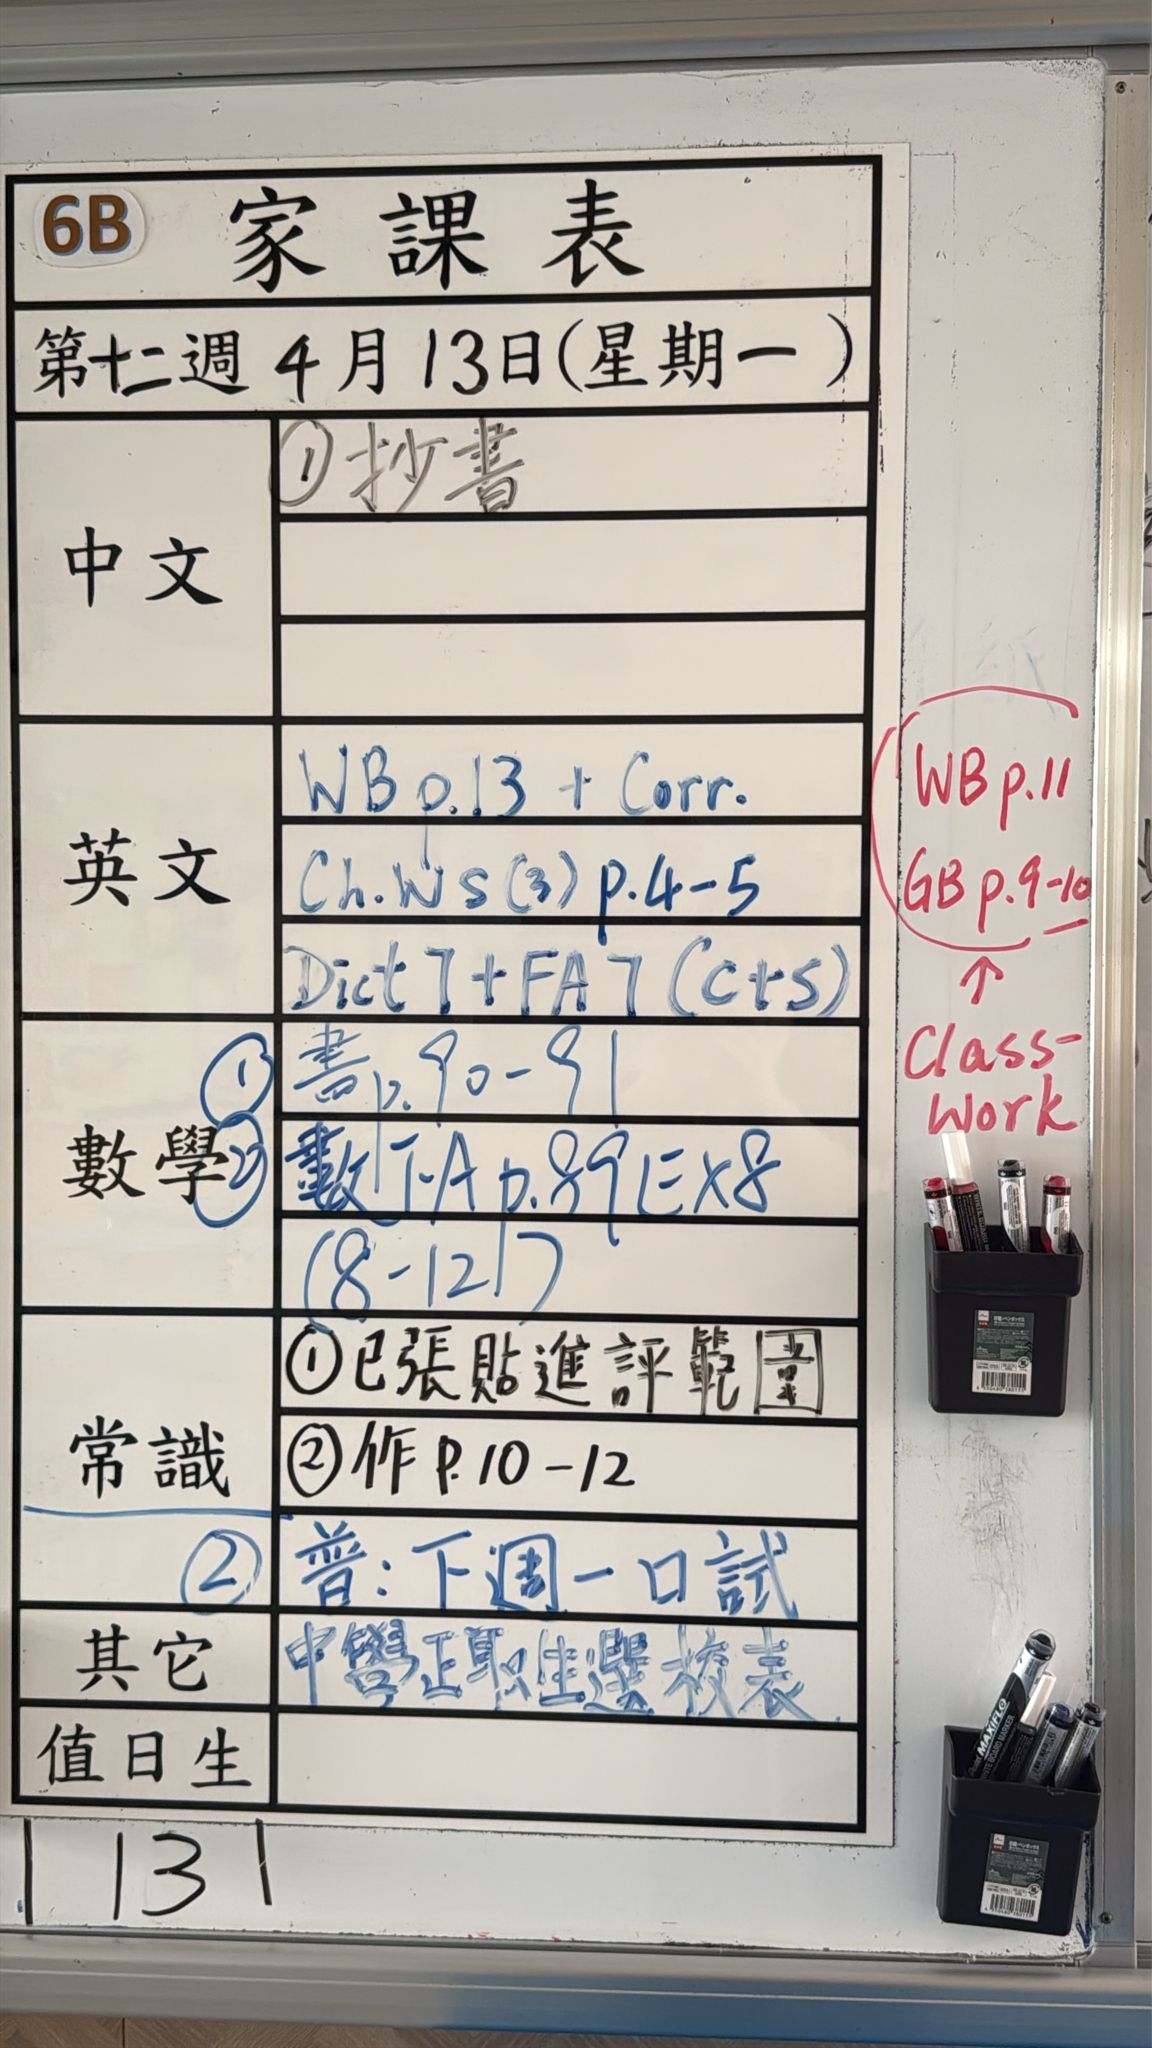 6B 家課表
第十二週 4月13日(星期一)
中文
①抄書
英文
WB p.13 + Corr.
Ch.WS(3) p.4-5
Dict 7 + FA 7 (c+s)
WB p.11
GB p.9-10
↑
Class-
work
數學
① 書p.90-91
② 數下A p.89 Ex8
(8-12)
常識
①已張貼進評範圍
②作 p.10-12
② 普:下週一口試
其它
中學正取生選校表
值日生
131
MAXIFLO